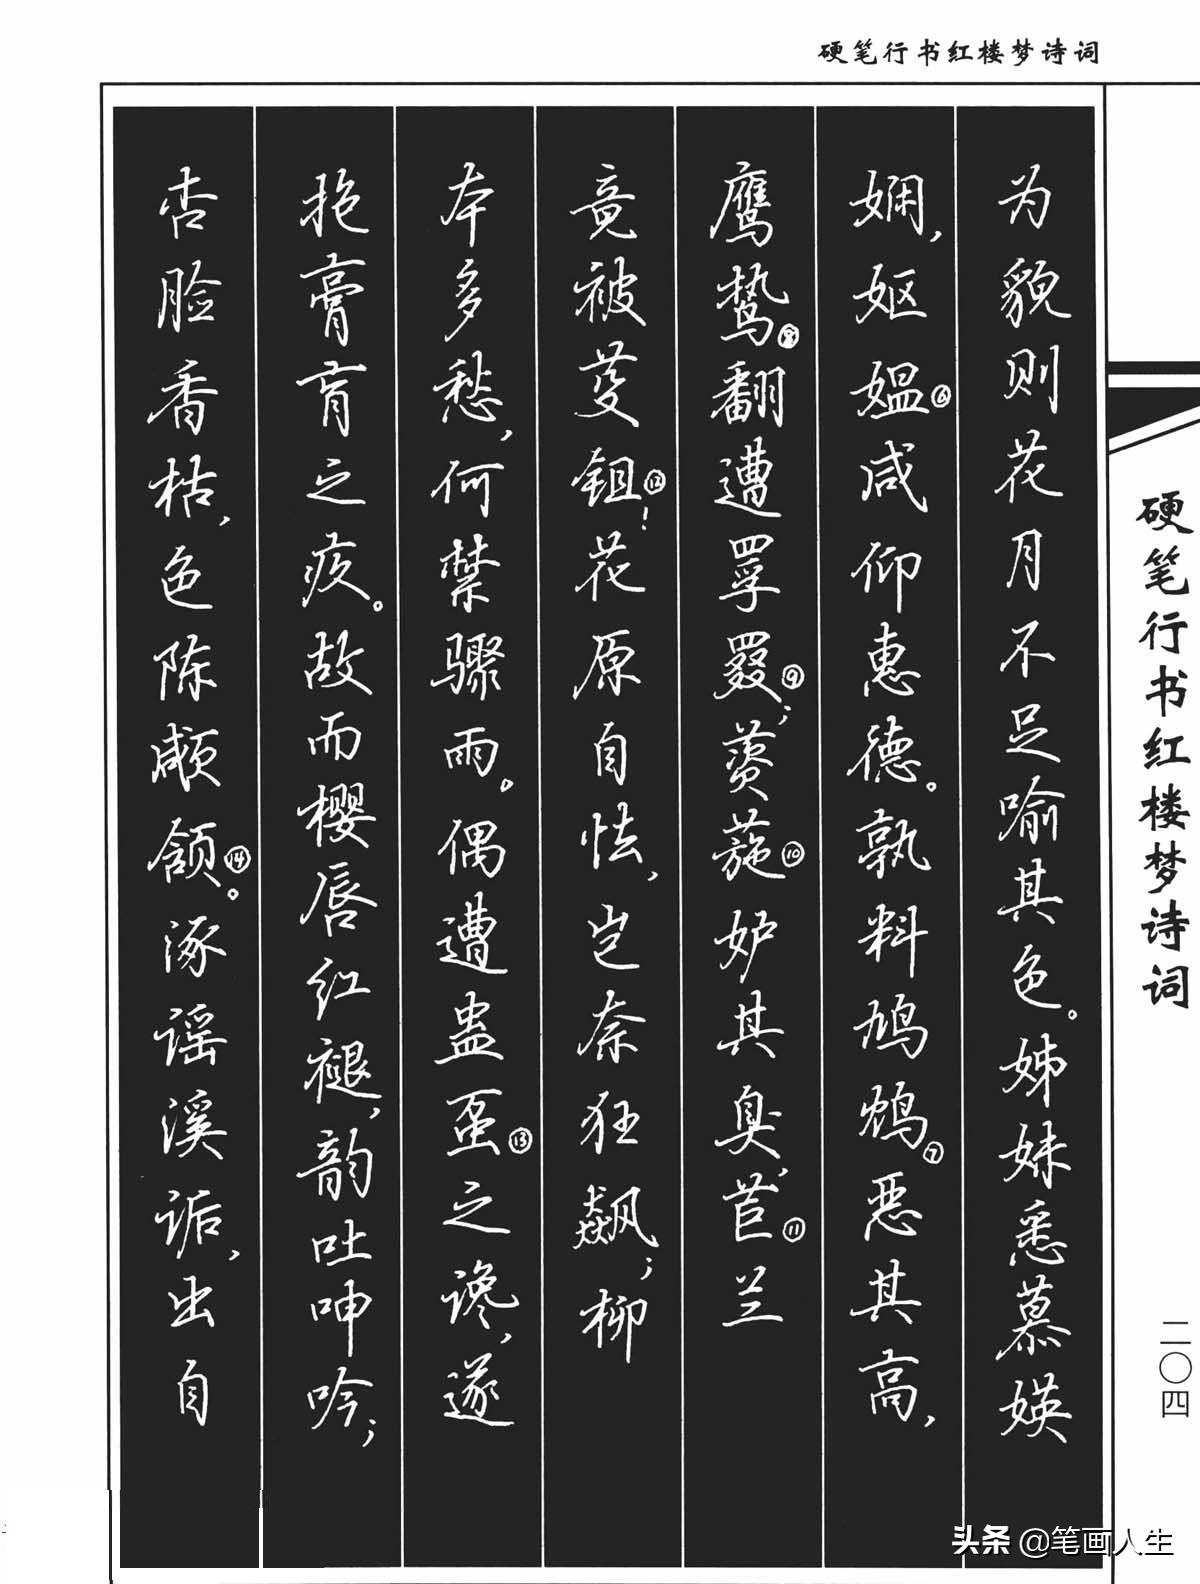 硬笔行书红楼梦诗词
为貌则花月不足喻其色。姊妹悉慕媖
娴，妪媪⑥咸仰惠德。孰料鸠鸩⑦恶其高，
鹰鸷⑧翻遭罦罬⑨；薋葹⑩妒其臭，茝⑪兰
竟被芟鉏⑫！花原自怯，岂奈狂飙；柳
本多愁，何禁骤雨。偶遭蛊虿⑬之谗，遂
抱膏肓之疚。故而樱唇红褪，韵吐呻吟；
杏脸香枯，色陈顑颔⑭。涿谣溪诟，出自
硬笔行书红楼梦诗词
二〇四
头条 @笔画人生